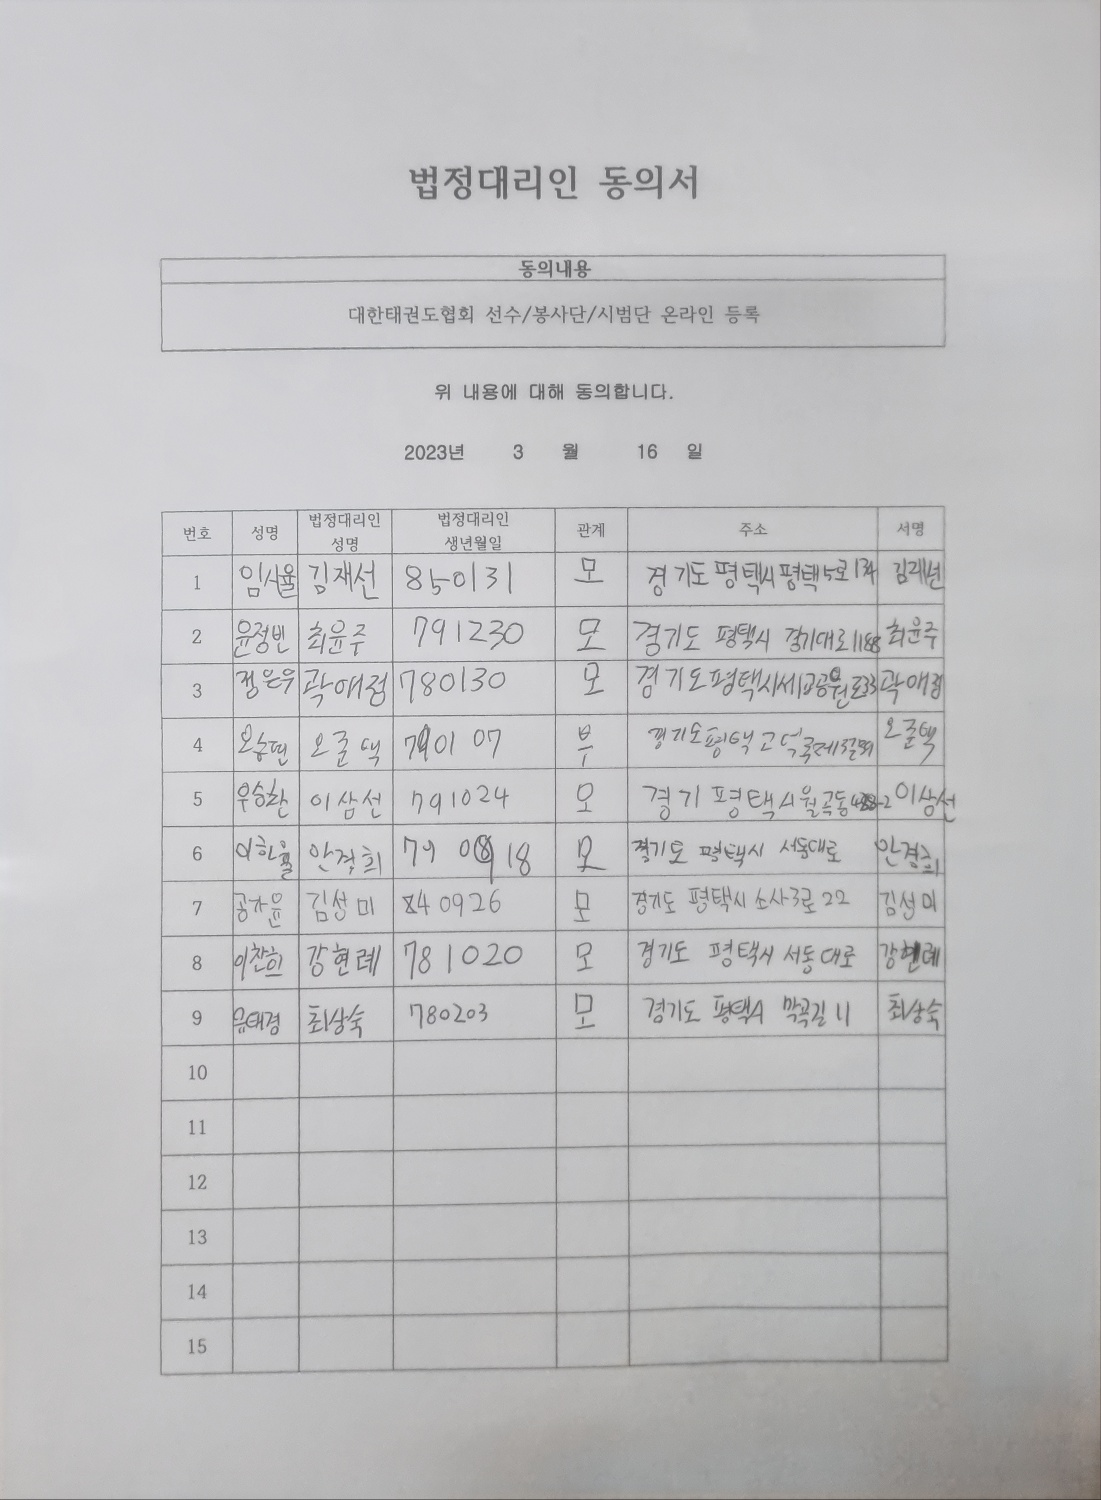 법정대리인 동의서
동의내용
대한태권도협회 선수/봉사단/시범단 온라인 등록
위 내용에 대해 동의합니다.
2023년 3 월 16 일
번호 성명 법정대리인 성명 법정대리인 생년월일 관계 주소 서명
1 임시율 김재선 850131 모 경기도 평택시 평택5로134 김재선
2 윤정빈 최윤주 791230 모 경기도 평택시 경기대로1188 최윤주
3 정은우 곽애정 780130 모 경기도평택시세교공원로33 곽애정
4 부 경기도평택 고덕
5 우승환 이삼선 791024 모 경기 평택시월곡동 이삼선
6 이하율 안경희 79 18 모 경기도 평택시 서동대로 안경희
7 공가윤 김성미 840926 모 경기도 평택시 소사3로 22 김성미
8 이찬희 강현례 781020 모 경기도 평택시 서동대로 강현례
9 윤태경 최상숙 780203 모 경기도 평택시 막곡길 11 최상숙
10
11
12
13
14
15